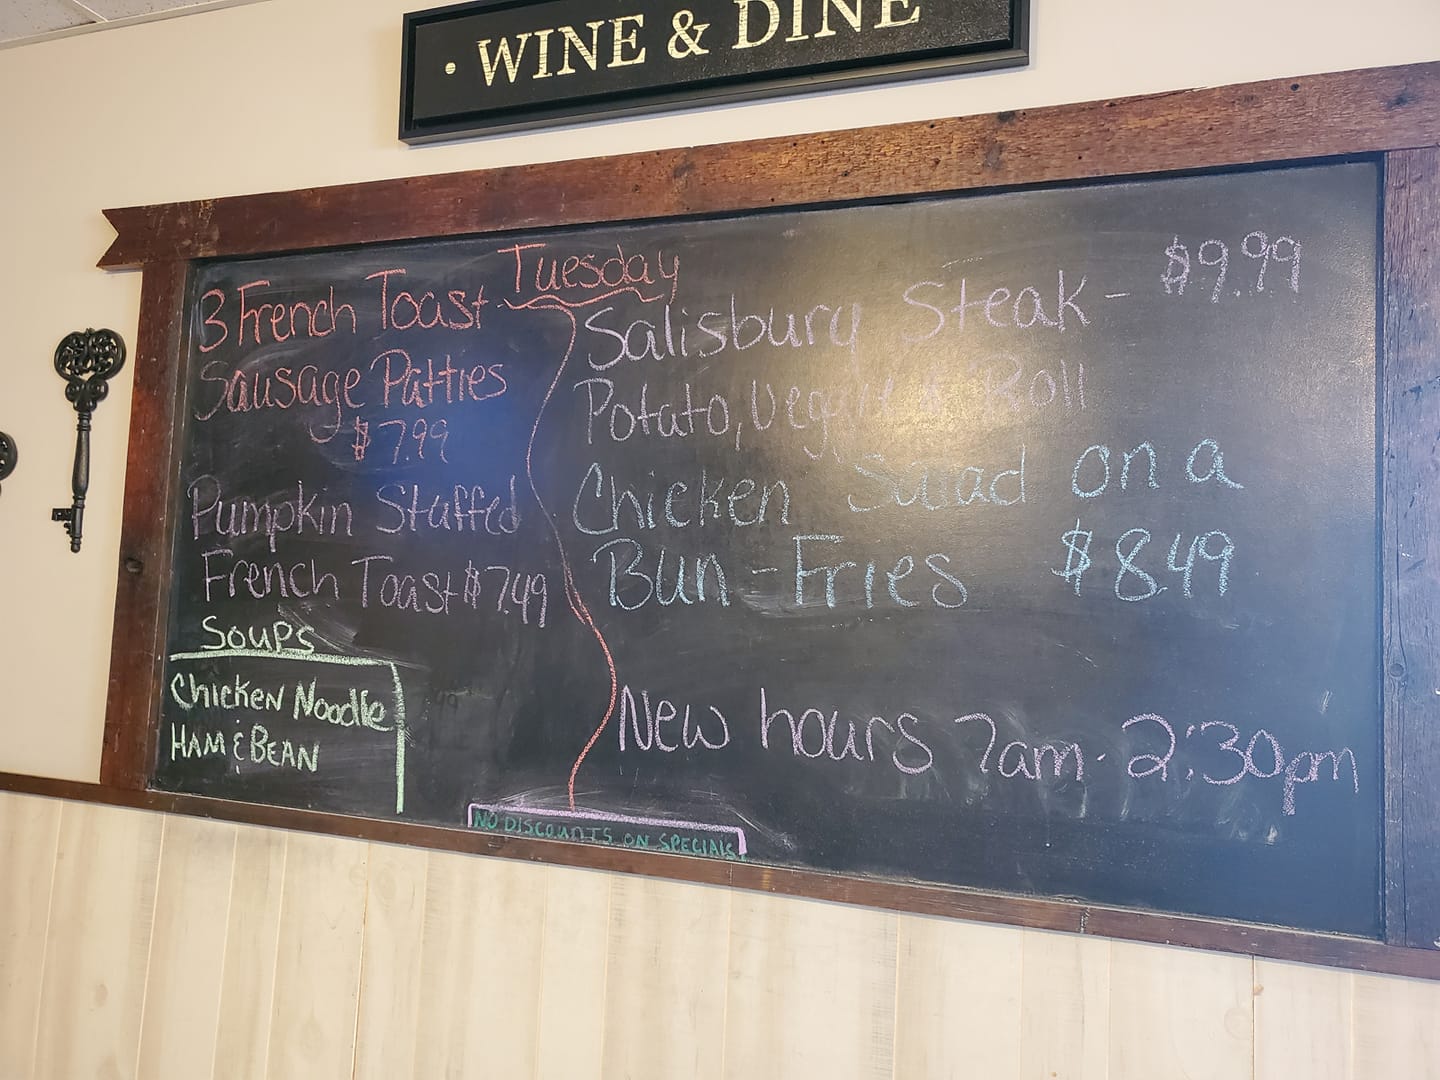 • WINE & DINE
Tuesday
3 French Toast
Sausage Patties
$7.99
Pumpkin Stuffed
French Toast $7.49
Soups
Chicken Noodle
Ham & Bean
Salisbury Steak - $9.99
Potato, Veggie & Roll
Chicken Salad on a
Bun - Fries $8.49
New hours 7am - 2:30pm
NO DISCOUNTS ON SPECIALS!